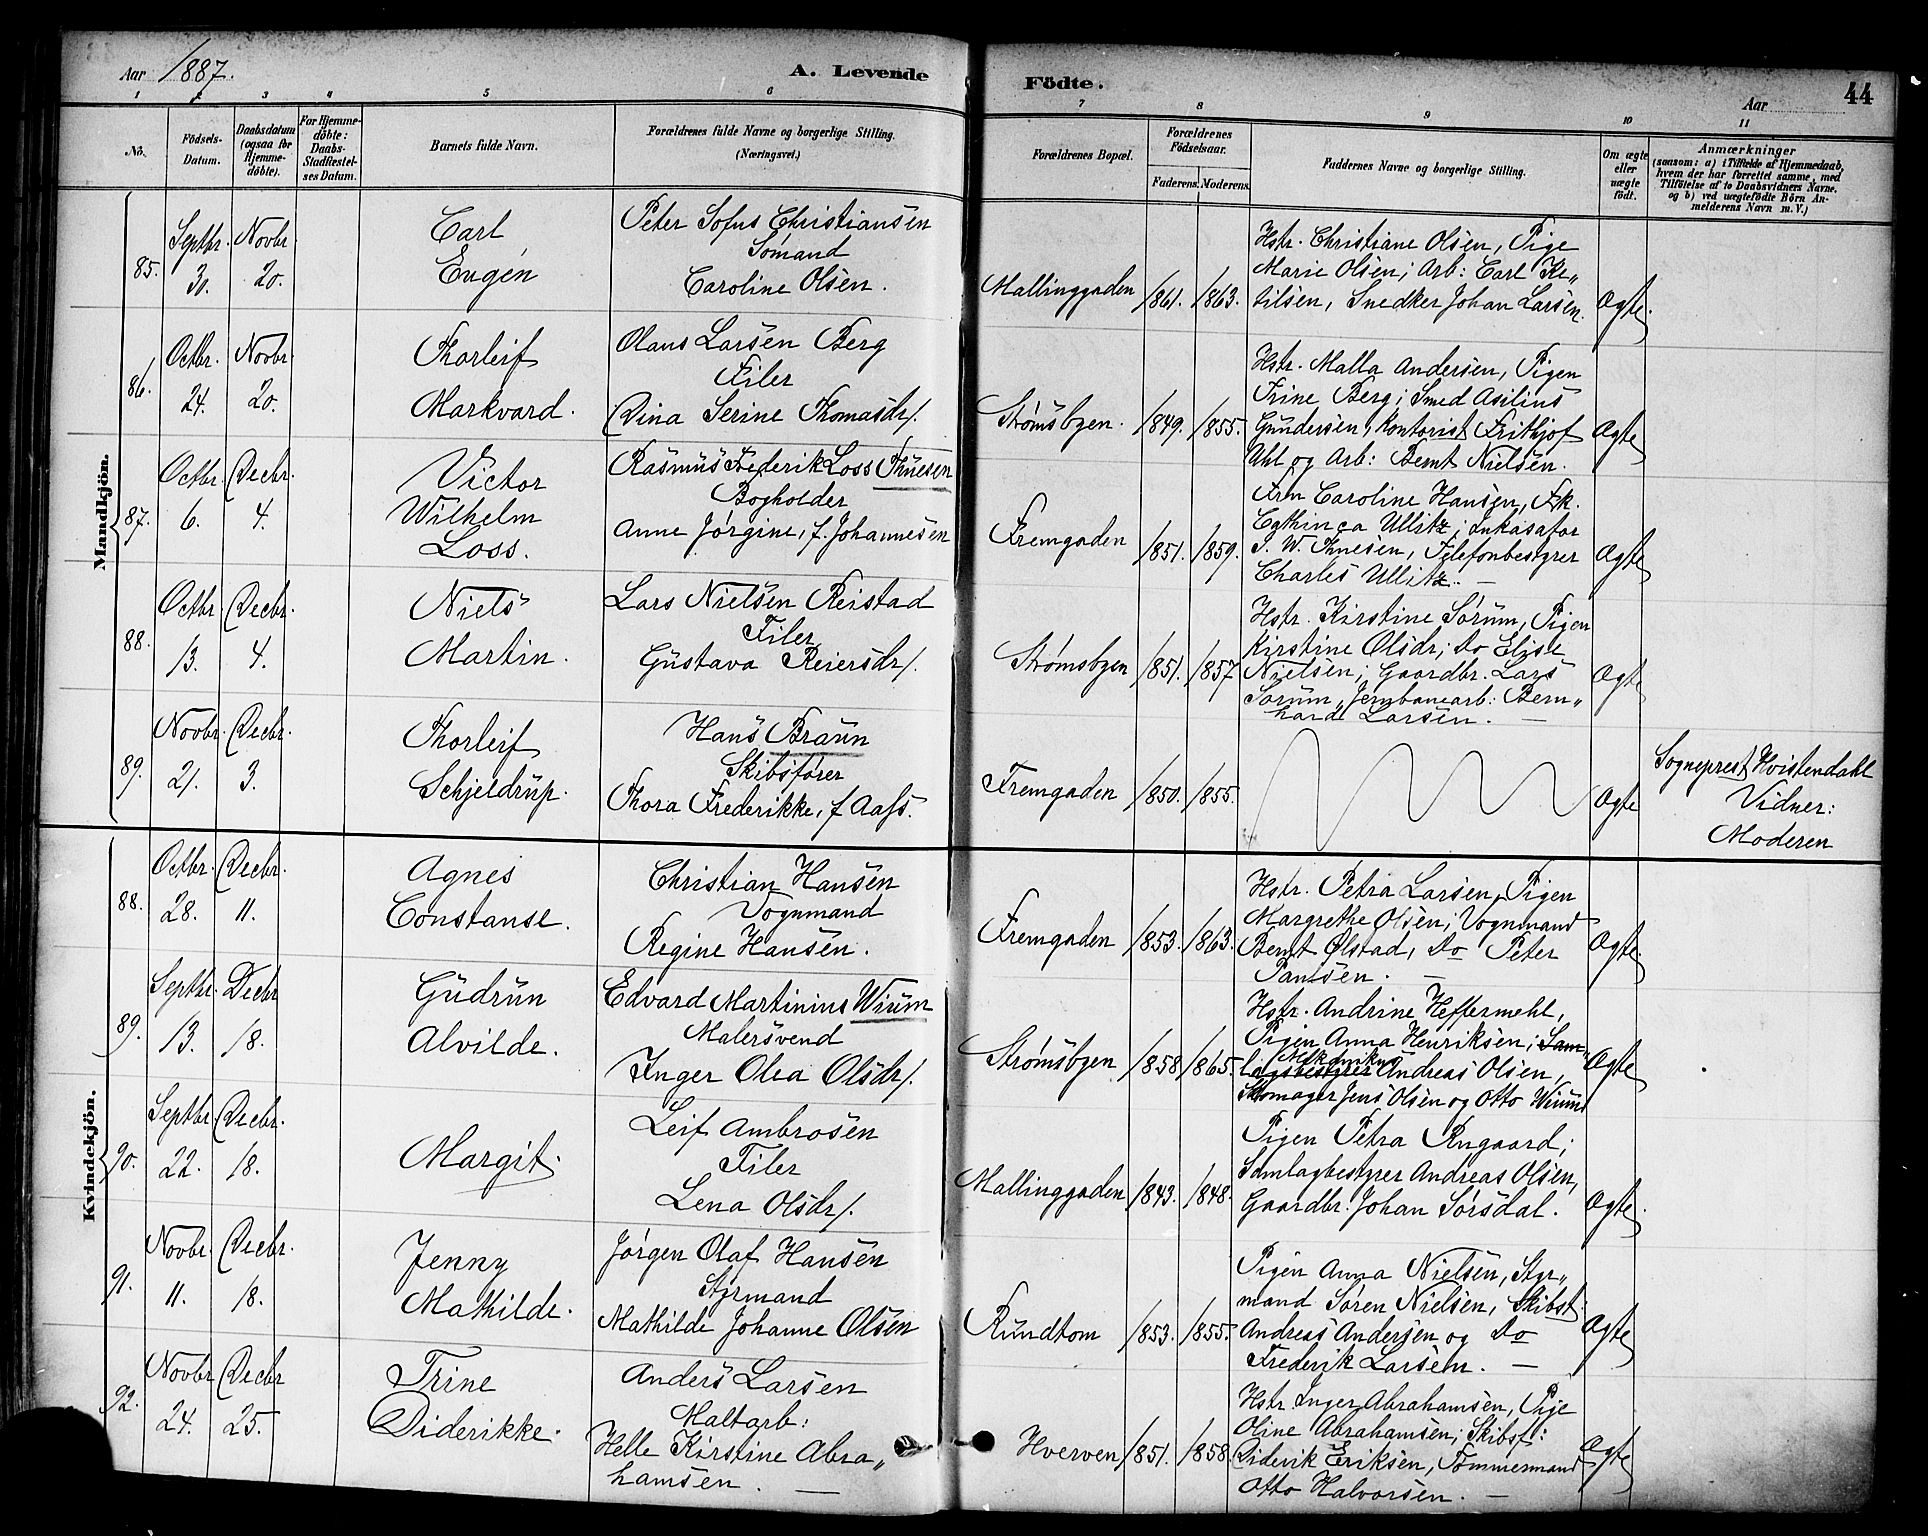 Aar 1887.
A. Levende
Födte.
Aar
44
1 2 3 4 5 6 7 8 9 10 11
No.
Födsels-Datum.
Daabsdatum (ogsaa for Hjemmedöbte).
For Hjemmedöbte: Daabs-Stadfæstelses Datum.
Barnets fulde Navn.
Forældrenes fulde Navne og borgerlige Stilling. (Næringsvei.)
Forældrenes Bopæl.
Forældrenes Födselsaar.
Faderens. Moderens.
Faddernes Navne og borgerlige Stilling.
Om ægte eller uægte födt.
Anmærkninger
(saasom: a) i Tilfælde af Hjemmedaab, hvem der har forrettet samme, med Tilföielse af to Daabsvidners Navne, og b) ved uægtefödte Börn Anmelderens Navn m. V.)
Mandkjön.
85.
Septbr. 30.
Novbr. 20.
Carl
Eugén
Peter Sofus Christiansen
Sømand
Caroline Olsen.
Mallinggaden
1861. 1863.
Hstr. Christiane Olsen, Pige
Marie Olsen; Arb: Carl Ke„
tilsen, Snedker Johan Larsen.
Ægte.
86.
Octbr. 24.
Novbr. 20.
Thorleif
Markvard.
Olaus Larsen Berg
Filer
Dina Serine Thomasdr/.
Strømsbyen.
1849. 1855.
Hstr. Malla Andersen, Pigen
Trine Berg; Smed Asilius
Gundersen, Kontorist Frithjof
Uhl og Arb: Bernt Nielsen.
Ægte
87.
Octbr. 6.
Decbr. 4.
Victor
Wilhelm
Loss.
Rasmus Frederik Loss Thuesen
Bogholder
Anne Jørgine, f. Johannesen
Fremgaden
1851. 1859.
Frm Caroline Hansen, Frk.
Cathinca Ullitz; Inkasator
S. W. Thuesen, Telefonbestyrer
Charles Ullitz. —
Ægte
88.
Octbr. 13.
Decbr. 4.
Niels
Martin.
Lars Nielsen Reistad
Filer
Gustava Reiersdr/.
Strømsbyen
1851. 1857
Hstr. Kirstine Sørum, Pigen
Kirstine Olsdr; Do Elise
Nielsen; Gaardbr. Lars
Sørum, Jernbanearb: Bern„
hard Larsen. —
Ægte
89.
Novbr. 21.
Decbr. 3.
Thorleif
Schjeldrup.
Hans Braun
Skibsfører
Thora Frederikke, f Aass.
Fremgaden
1850. 1855.
Ægte
Sogneprest Hvistendahl
Vidner:
Moderen
Kvindekjön.
88.
Octbr. 28.
Decbr. 11.
Agnes
Constanse.
Christian Hansen
Vognmand
Regine Hansen.
Fremgaden
1853. 1863.
Hstr. Petra Larsen, Pigen
Margrethe Olsen; Vognmand
Bernt Ølstad, Do Peter
Paulsen. —
Ægte.
89.
Septbr. 13.
Decbr 18.
Gudrun
Alvilde.
Edvard Martinius Wium
Malersvend
Inger Olea Olsdr/.
Strømsbyen
1858 1865.
Hstr. Andrine Heftermehl,
Pigen Anna Henriksen; Sam„
lagsbestyrer Andreas Olsen,
Skomager Jens Olsen og Otto Wium
Ægte
90.
Septbr 22.
Decbr. 18.
Margit.
Leif Ambrosen
Filer
Lena Olsdr/.
Mallinggaden
1843. 1848.
Pigen Petra Ryngaard;
Samlagbestyrer Andreas Olsen,
Gaardbr. Johan Sørsdal.
Ægte.
91.
Novbr. 11.
Decbr. 18.
Jenny
Mathilde.
Jørgen Olaf Hansen
Styrmand
Mathilde Johanne Olsen
Rundtom
1853. 1855.
Pigen Anna Nielsen, Styr„
mand Søren Nielsen, Skibst.
Andreas Andersen og Do
Frederik Larsen. —
Ægte
92.
Novbr 24.
Decbr 25.
Trine
Diderikke.
Anders Larsen
Maltarb:
Helle Kirstine Abra„
hamsen. —
Hverven
1851. 1858.
Hstr. Inger Abrahamsen, Pige
Oline Abrahamsen; Skibst:
Diderik Eriksen, Tømmermand
Otto Halvorsen. —
Ægte